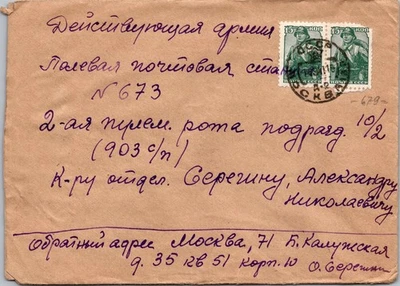 Действующая армия
Полевая почтовая стан
N 673
2-ая пулем. рота подразд. 10/2
(903 с/п)
К-ру отдел. Серегину, Александру
Николаевичу
Обратный адрес Москва, 71 Б. Калужская
д. 35 кв 51 корп. 10 О. Серегин
15 КОП
15 КОП
СССР
МОСКВА
-679-